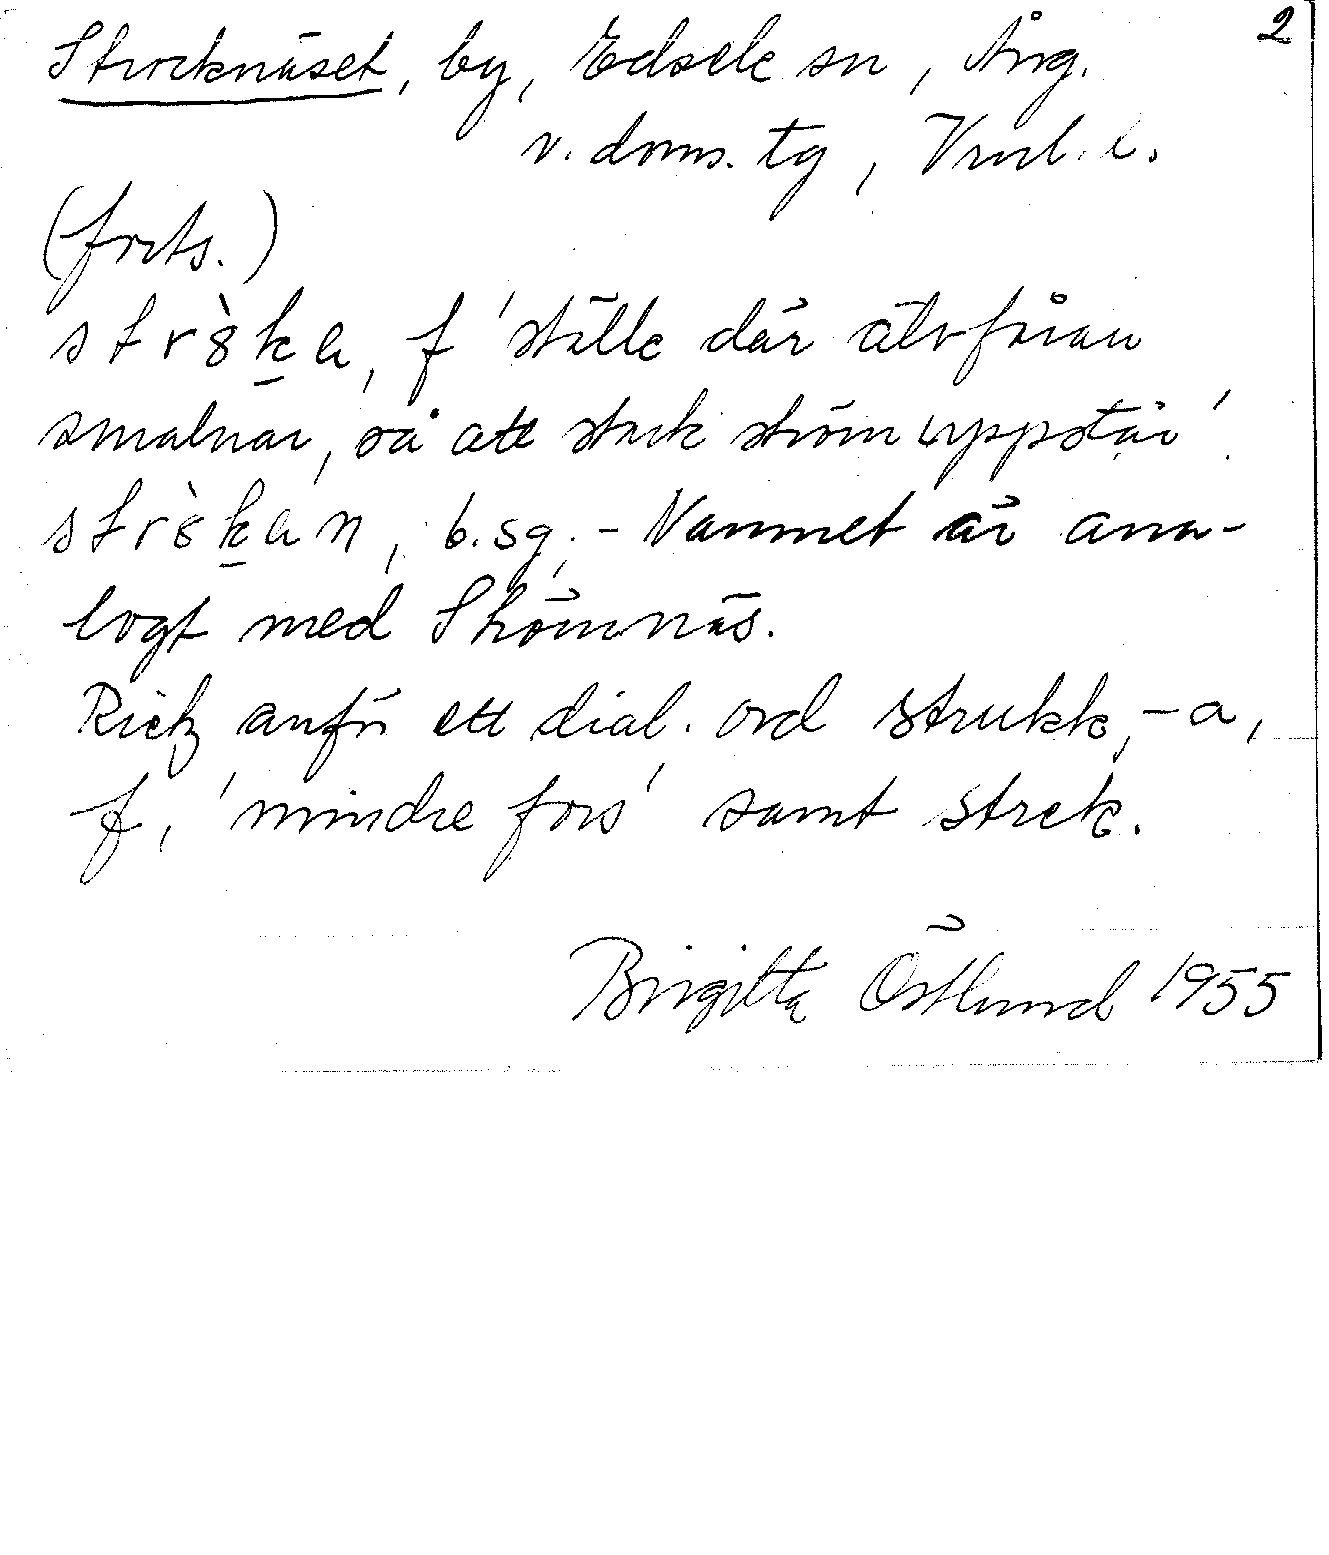 2
Strocknäset, by, Edsele sn, Ång.
v. doms. tg, Vnrl. l.
(forts.)
strè̀ka, f 'ställe där älvfåran
smalnar, så att stark ström uppstår'.
strèkan, b.sg. - Namnet är ana-
logt med Strömnäs.
Rietz anför ett dial. ord strukk, -a,
f, 'mindre fors' samt strek.
Birgitta Östlund 1955